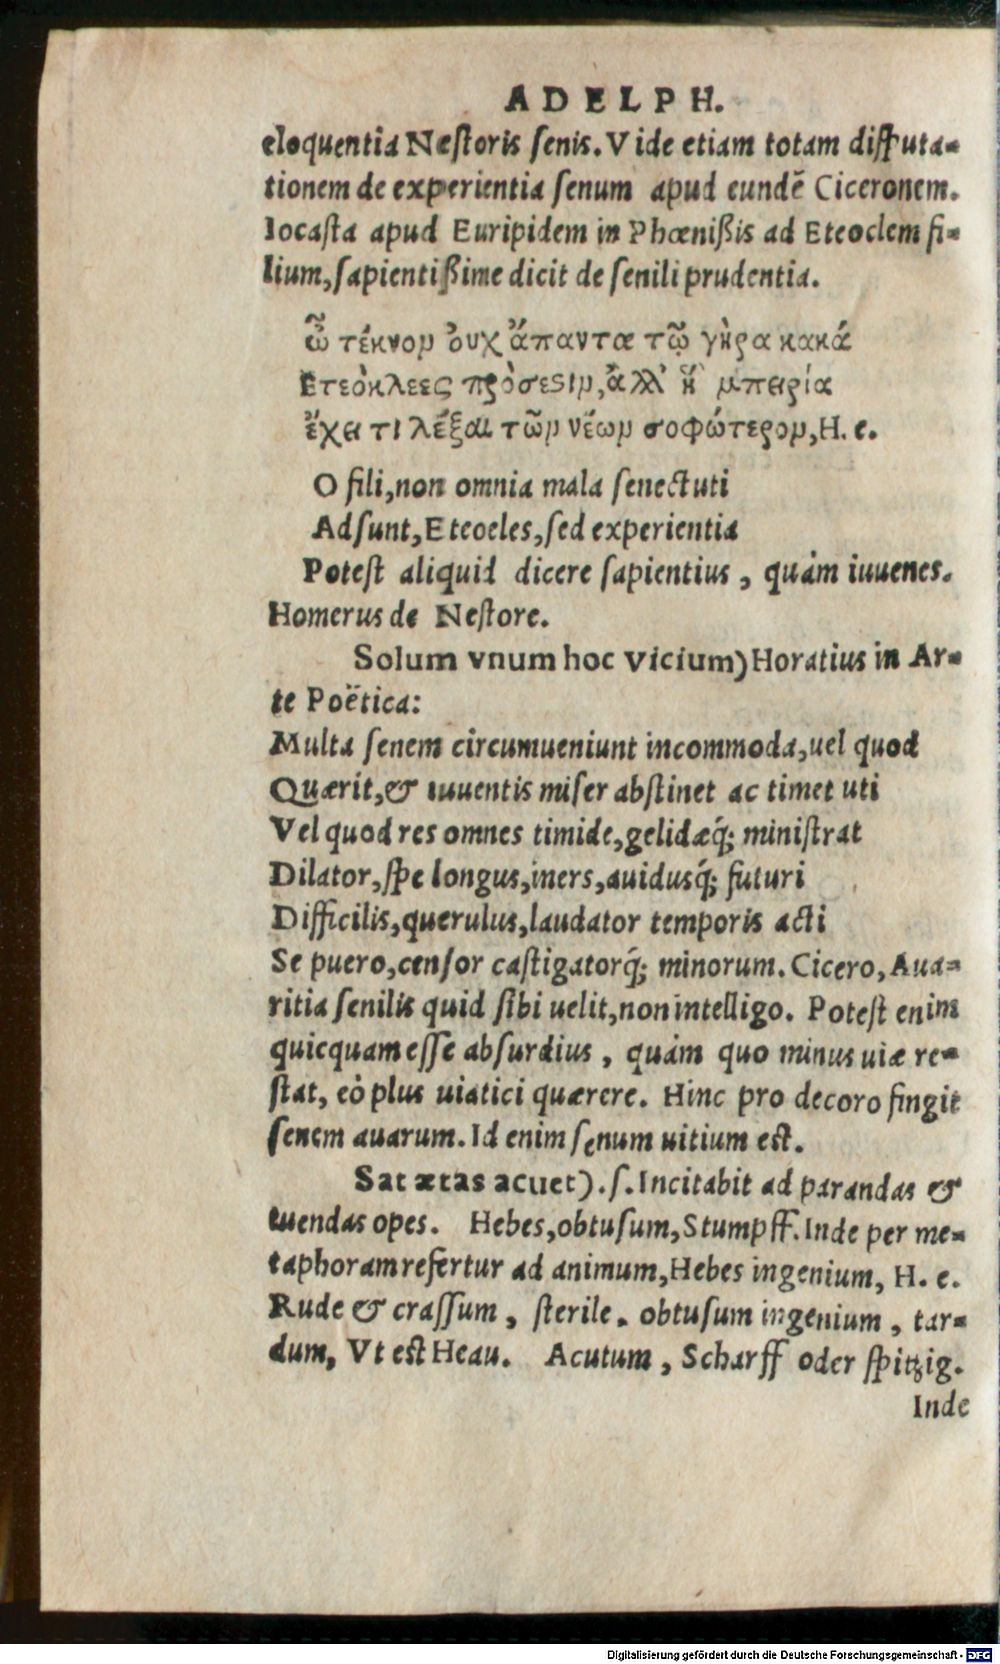 ADELPH.
eloquentia Nestoris senis. Vide etiam totam disputa-
tionem de experientia senum apud eundē Ciceronem.
Iocasta apud Euripidem in Phœnißis ad Eteoclem fi-
lium, sapientißime dicit de senili prudentia.
ὦ τέκνομ ὀυχ ἅπαντα τῷ γήρα κακά
Ετεόκλεες πρόσεστιμ, ἀλλ' ἡ μπειρία
ἔχει τι λέξαι τῶμ νέωμ σοφώτερομ, H. e.
O fili, non omnia mala senectuti
Adsunt, Eteoeles, sed experientia
Potest aliquid dicere sapientius, quàm iuuenes.
Homerus de Nestore.
Solum vnum hoc vicium) Horatius in Ar-
te Poëtica:
Multa senem circumueniunt incommoda, uel quod
Quærit, & iuuentis miser abstinet ac timet uti
Vel quod res omnes timide, gelidæq́; ministrat
Dilator, spe longus, iners, auidusq́; futuri
Difficilis, querulus, laudator temporis acti
Se puero, censor castigatorq́; minorum. Cicero, Aua-
ritia senilis quid sibi uelit, non intelligo. Potest enim
quicquam esse absurdius, quàm quo minus uiæ re-
stat, eò plus uiatici quærere. Hinc pro decoro fingit
senem auarum. Id enim senum uitium est.
Sat ætas acuet). s. Incitabit ad parandas &
tuendas opes. Hebes, obtusum, Stumpff. Inde per me-
taphoram refertur ad animum, Hebes ingenium, H. e.
Rude & crassum, sterile. obtusum ingenium, tar-
dum, Vt est Heau. Acutum, Scharff oder spitzig.
Inde
Digitalisierung gefördert durch die Deutsche Forschungsgemeinschaft - DFG